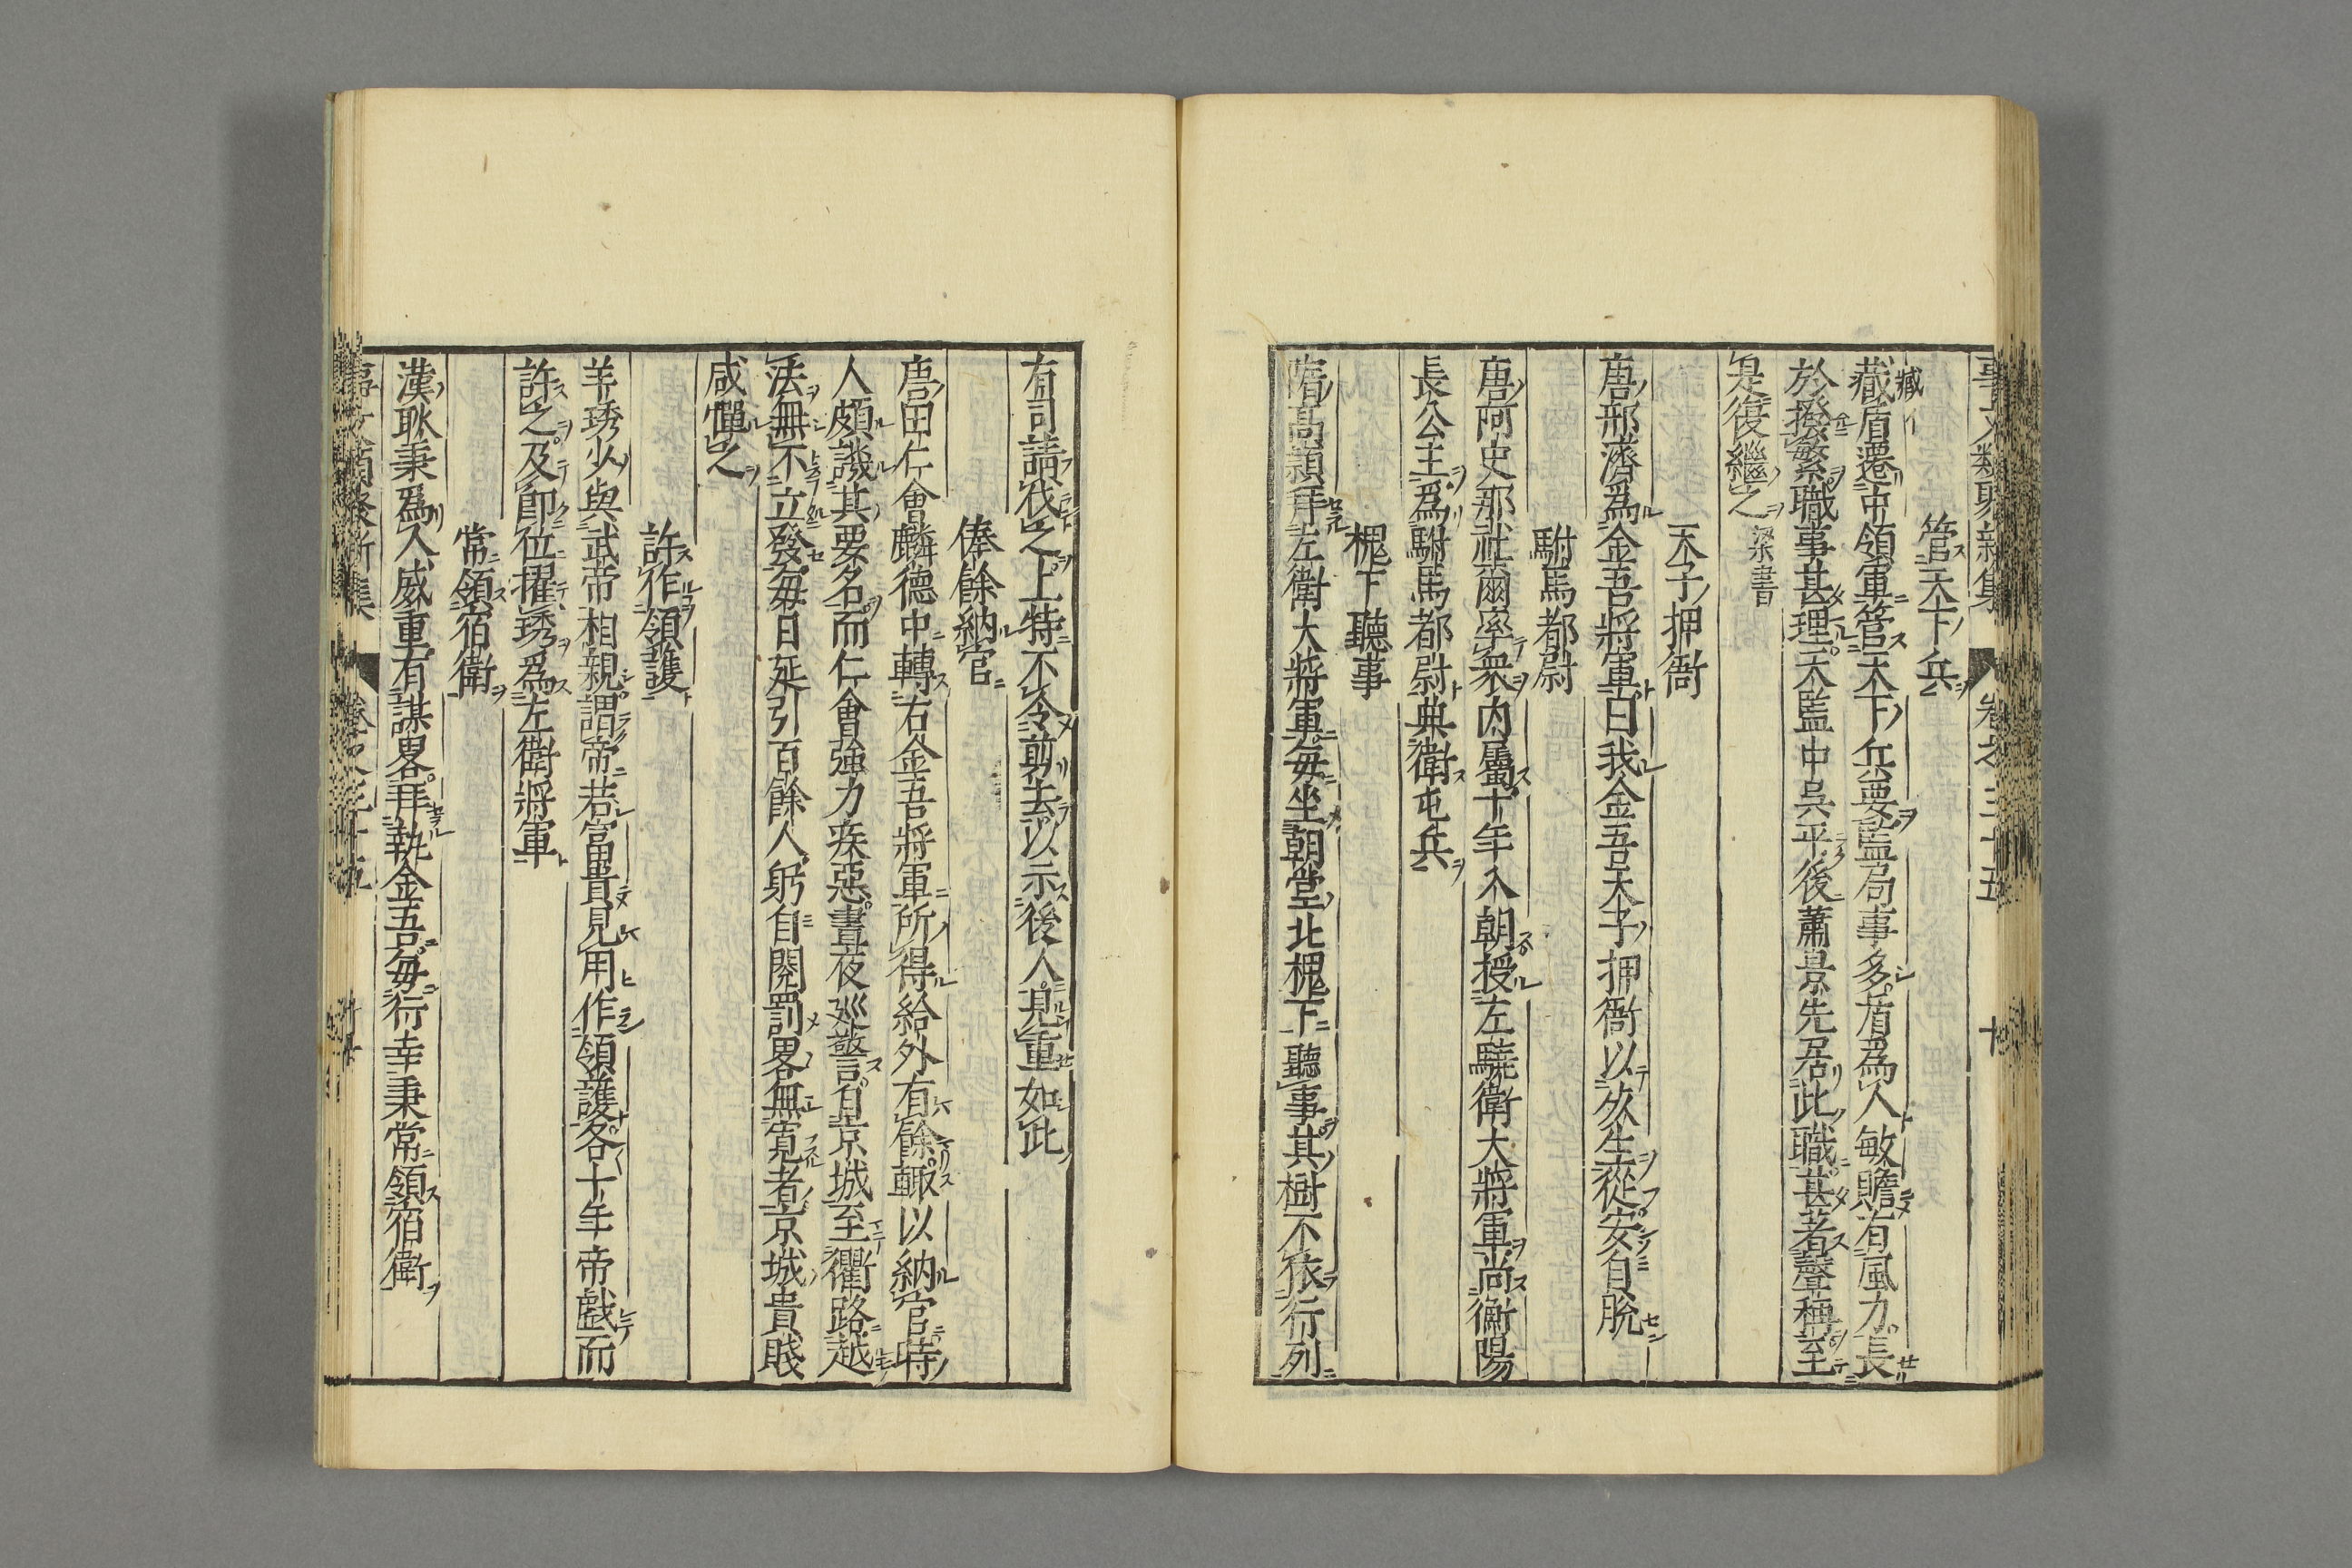 事文類聚新集 卷之三十五 十
管天下兵
臧盾遷中領軍管天下兵要監局事多盾爲人敏贍有風力長
於撥繁職事甚理天監中吳平後蕭景先居此職甚著聲稱至
是復繼之 梁書
天子押衙
唐邢濟爲金吾將軍曰我金吾天子押衙以死生從安自脫
駙馬都尉
唐阿史那社爾率衆內屬十年入朝授左驍衛大將軍尚衡陽
長公主爲駙馬都尉典衛屯兵
槐下聽事
隋高熲拜左衛大將軍每坐朝堂北槐下聽事其樹不依行列
有司請伐之上特不令剪去以示後人見重如此
俸餘納官
唐田仁會麟德中轉右金吾將軍所得給外有餘輙以納官時
人頗譏其要名而仁會強力疾惡晝夜廵警自京城至衢路越
法無不立發每日延引百餘人躬自閱罰畧無寬者京城貴賤
咸憚之
許作領護
羊琇少與武帝相親謂帝若富貴見用作領護各十年帝戲而
許之及卽位擢琇爲左衛將軍
常領宿衛
漢耿秉爲人威重有謀畧拜執金吾每行幸秉常領宿衛